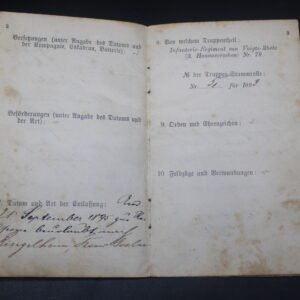 2
Versetzungen (unter Angabe des Datums und
der Kompagnie, Eskadron, Batterie):
Beförderungen (unter Angabe des Datums und
der Art):
Datum und Art der Entlassung: Am
September 1895 zur
beurlaubt nach
3
8. Von welchem Truppentheil:
Infanterie-Regiment von Voigts-Rhetz
(3. Hannoversches) Nr. 79
№ der Truppen-Stammrolle:
Nr. für 189
9. Orden und Ehrenzeichen:
10. Feldzüge und Verwundungen: